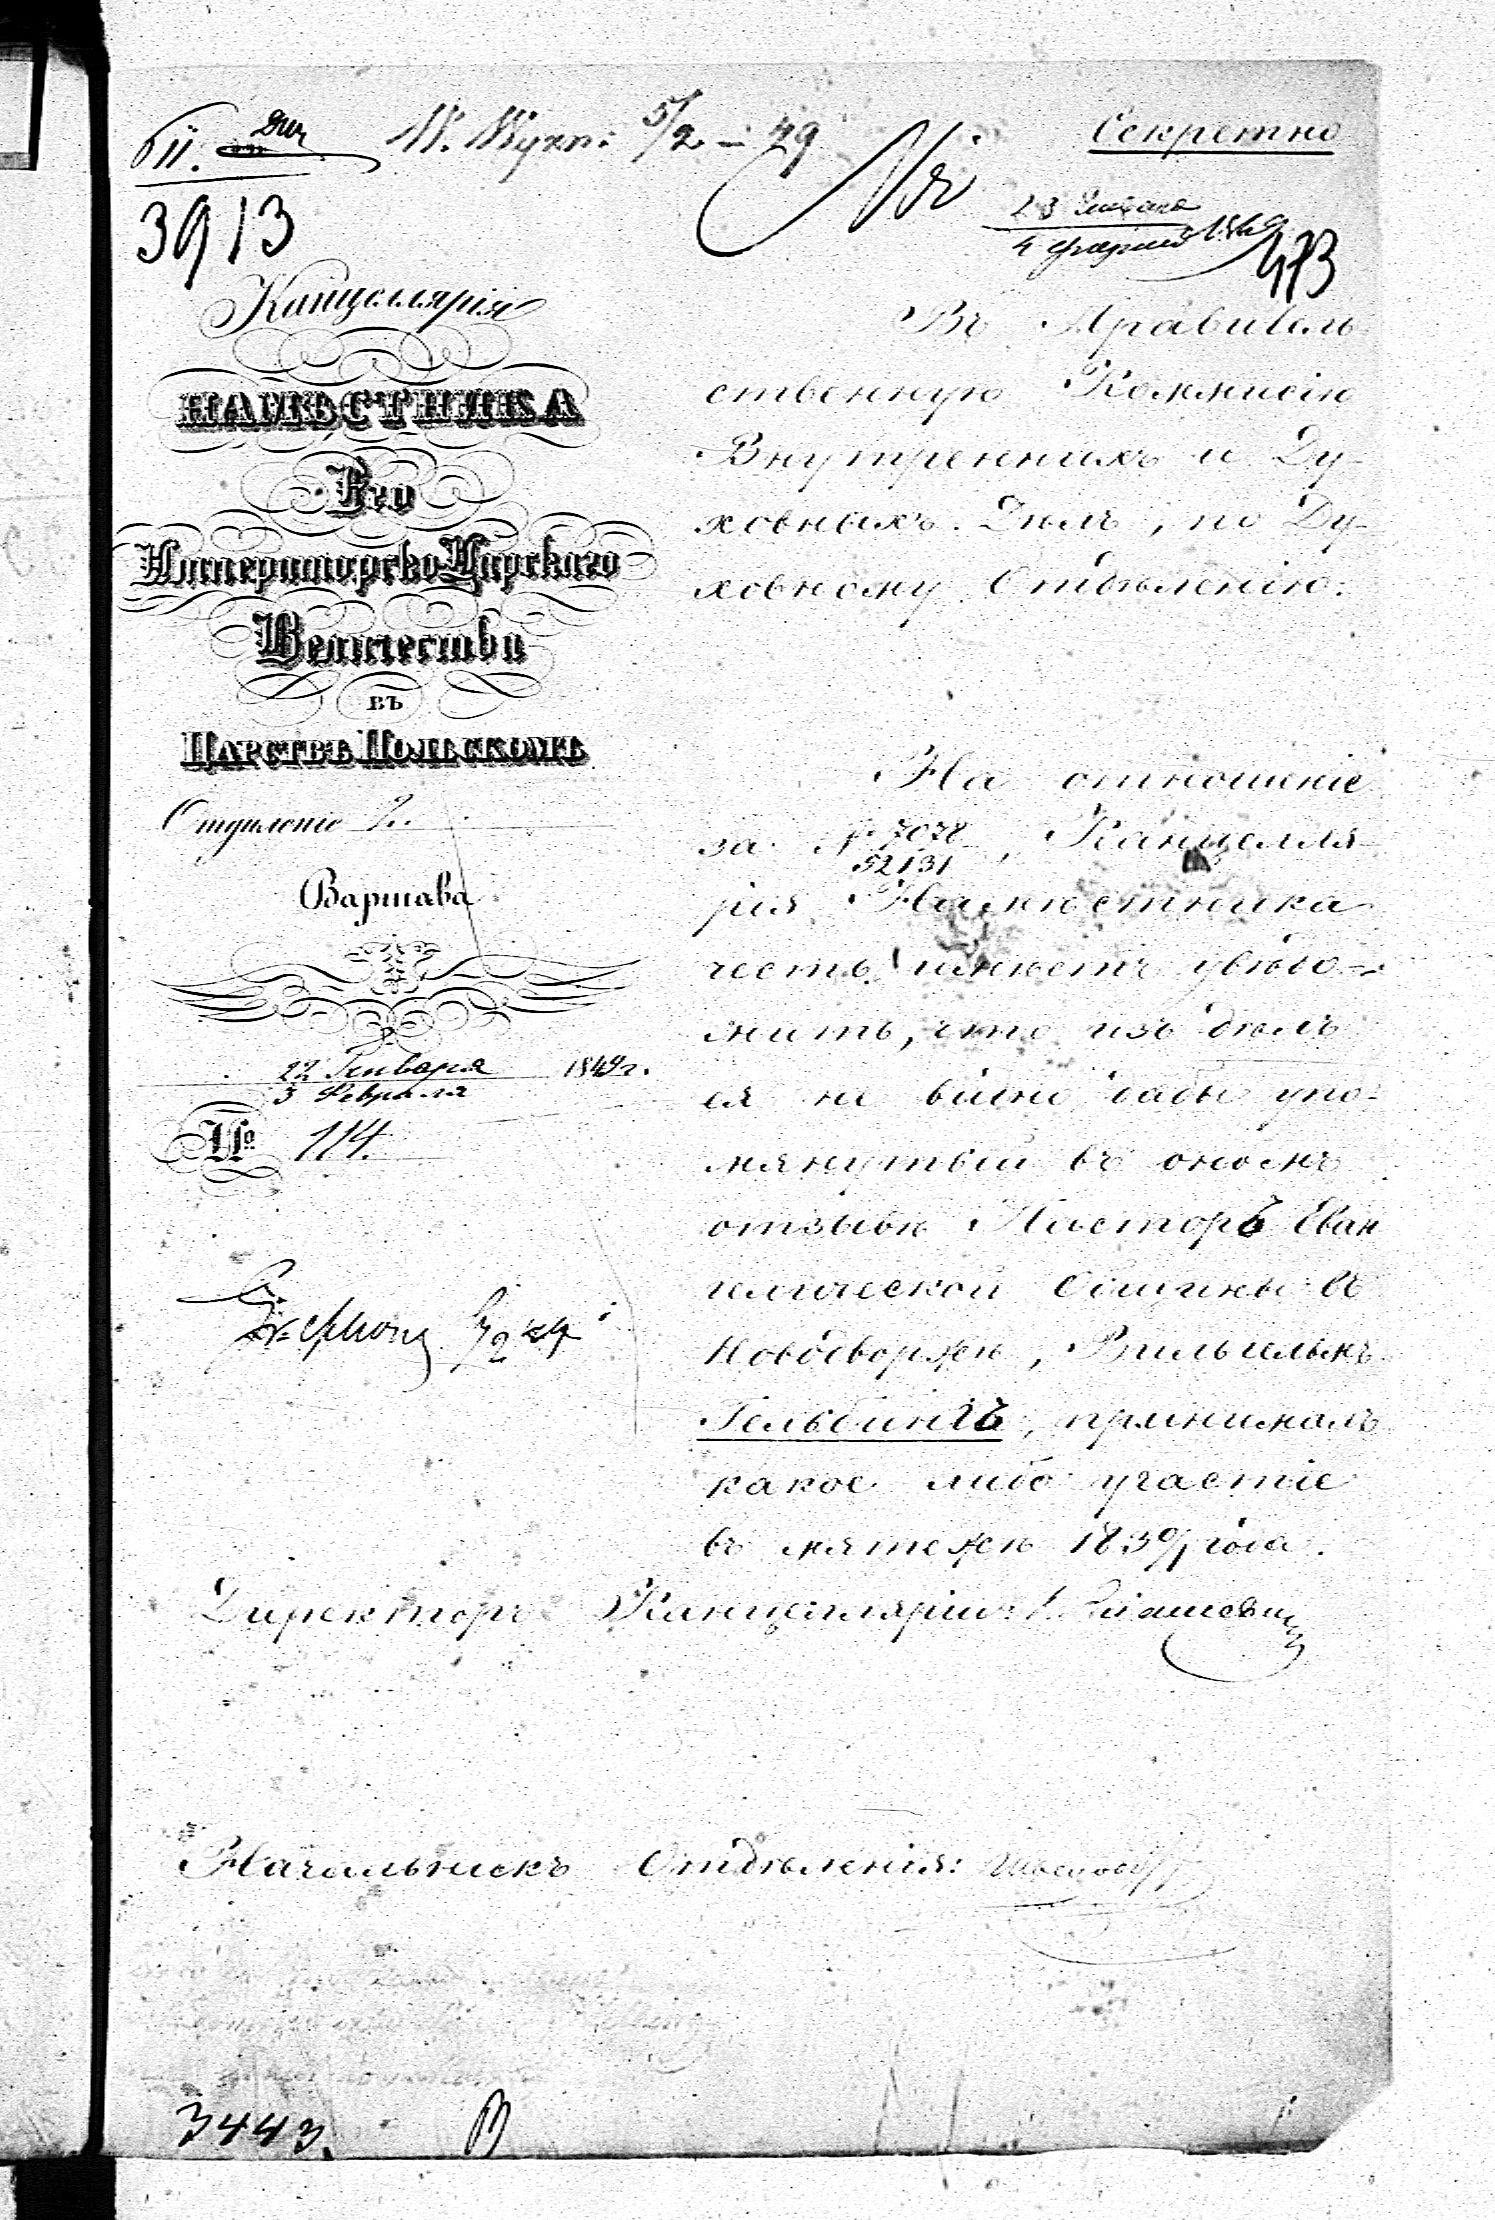 Секретно
3913
473
Канцелярія
НАМѢСТНИКА
Его
Императорско Царскаго
Величества
въ
ЦАРСТВѢ ПОЛЬСКОМЪ
Отдѣленіе 2.
Варшава
22 Генваря 1849 г.
3 Февраля
№ 114.
Въ Правитель
ственную Коммисію
Внутреннихъ и Ду-
ховныхъ Дѣлъ, по Ду-
ховному Отдѣленію.
На отношеніе
за № 7078
52131, Канцеля-
рія Намѣстника
честь имѣетъ увѣдо-
мить, что изъ дѣлъ
ея не видно дабы упо-
мянутый въ ономъ
отзывѣ Пасторъ Еван
гелической Общины въ
Новодворжѣ, Вильгельмъ
Гельбингъ, принималъ
какое либо участіе
въ мятежѣ 1830/1 года.
Директоръ Канцеляріи:
Начальникъ Отдѣленія:
3443.